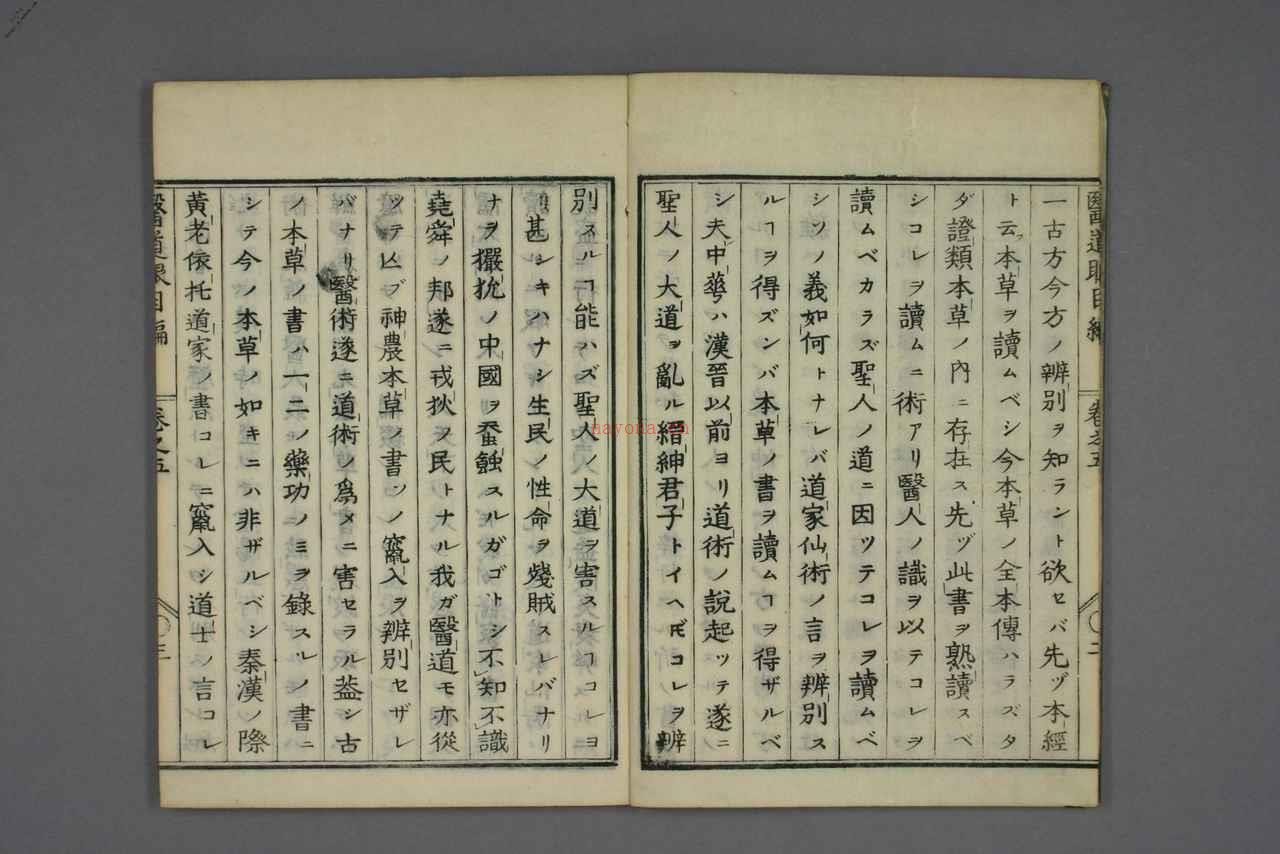 醫道眼目編 卷之五 二
一古方今方ノ辨別ヲ知ラント欲セバ先ヅ本經
ト云本草ヲ讀ムベシ今本草ノ全本傳ハラズタ
ダ證類本草ノ內ニ存在ス先ヅ此書ヲ熟讀スベ
シコレヲ讀ムニ術アリ醫人ノ識ヲ以テコレヲ
讀ムベカラズ聖人ノ道ニ因ツテコレヲ讀ムベ
シソノ義如何トナレバ道家仙術ノ言ヲ辨別ス
ルヿヲ得ズンバ本草ノ書ヲ讀ムヿヲ得ザルベ
シ夫中華ハ漢晉以前ヨリ道術ノ說起ツテ遂ニ
聖人ノ大道ヲ亂ル縉紳君子トイヘ𪜈コレヲ辨
別スルヿ能ハズ聖人ノ大道ヲ害スルヿコレヨ
リ甚シキハナシ生民ノ性命ヲ殘賊スレバナリ
ナヲ玁狁ノ中國ヲ蚕蝕スルガゴトシ不知不識
堯舜ノ邦遂ニ戎狄ノ民トナル我ガ醫道モ亦從
ツテ亾ブ神農本草ノ書ソノ竄入ヲ辨別セザレ
バナリ醫術遂ニ道術ノ爲メニ害セラル葢シ古
ノ本草ノ書ハ一二ノ藥功ノミヲ錄スルノ書ニ
シテ今ノ本草ノ如キニハ非ザルベシ秦漢ノ際
黃老依托道家ノ書コレニ竄入シ道士ノ言コレ
醫道眼目編 卷之五 三
nayona.cn